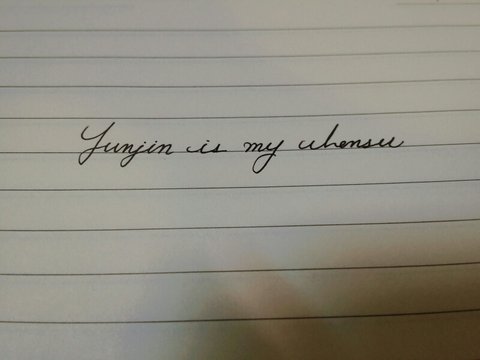 Yunjin is my uhensu